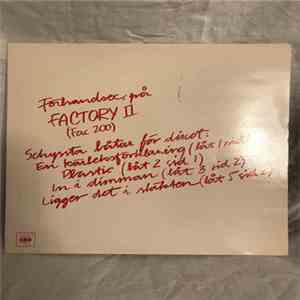 Förhandsex. på
FACTORY II
(Fac 200)
Schyssta låtar för discot:
En kärleksförklaring (låt 1 sid 1)
Plastic (låt 2 sid 1)
In i dimman (låt 3 sid 2)
Ligger det i släkten (låt 5 sid 2)
CBS